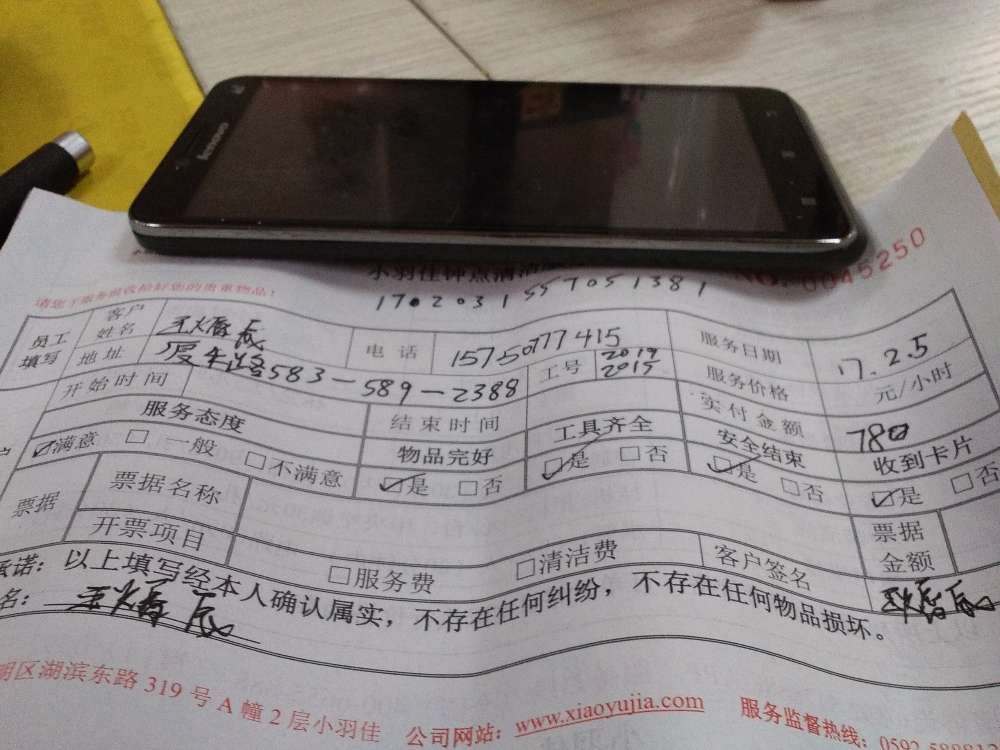 lenovo
小羽佳钟点清洁
NO. 0045250
请您了服务前收拾好您的贵重物品!
1702031557051381
员工填写 客户姓名 电话 15750777415 服务日期 17.2.5
地址 583-589-2388 工号 2019 2015 服务价格 元/小时
开始时间 结束时间 实付金额 780
服务态度 物品完好 工具齐全 安全结束 收到卡片
☑满意 □一般 □不满意 ☑是 □否 ☑是 □否 ☑是 □否 ☑是 □否
票据 票据名称 票据金额
开票项目 □服务费 □清洁费 客户签名
承诺:以上填写经本人确认属实,不存在任何纠纷,不存在任何物品损坏。
名:
明区湖滨东路 319 号 A 幢 2 层小羽佳 公司网站:www.xiaoyujia.com 服务监督热线:0592-5888